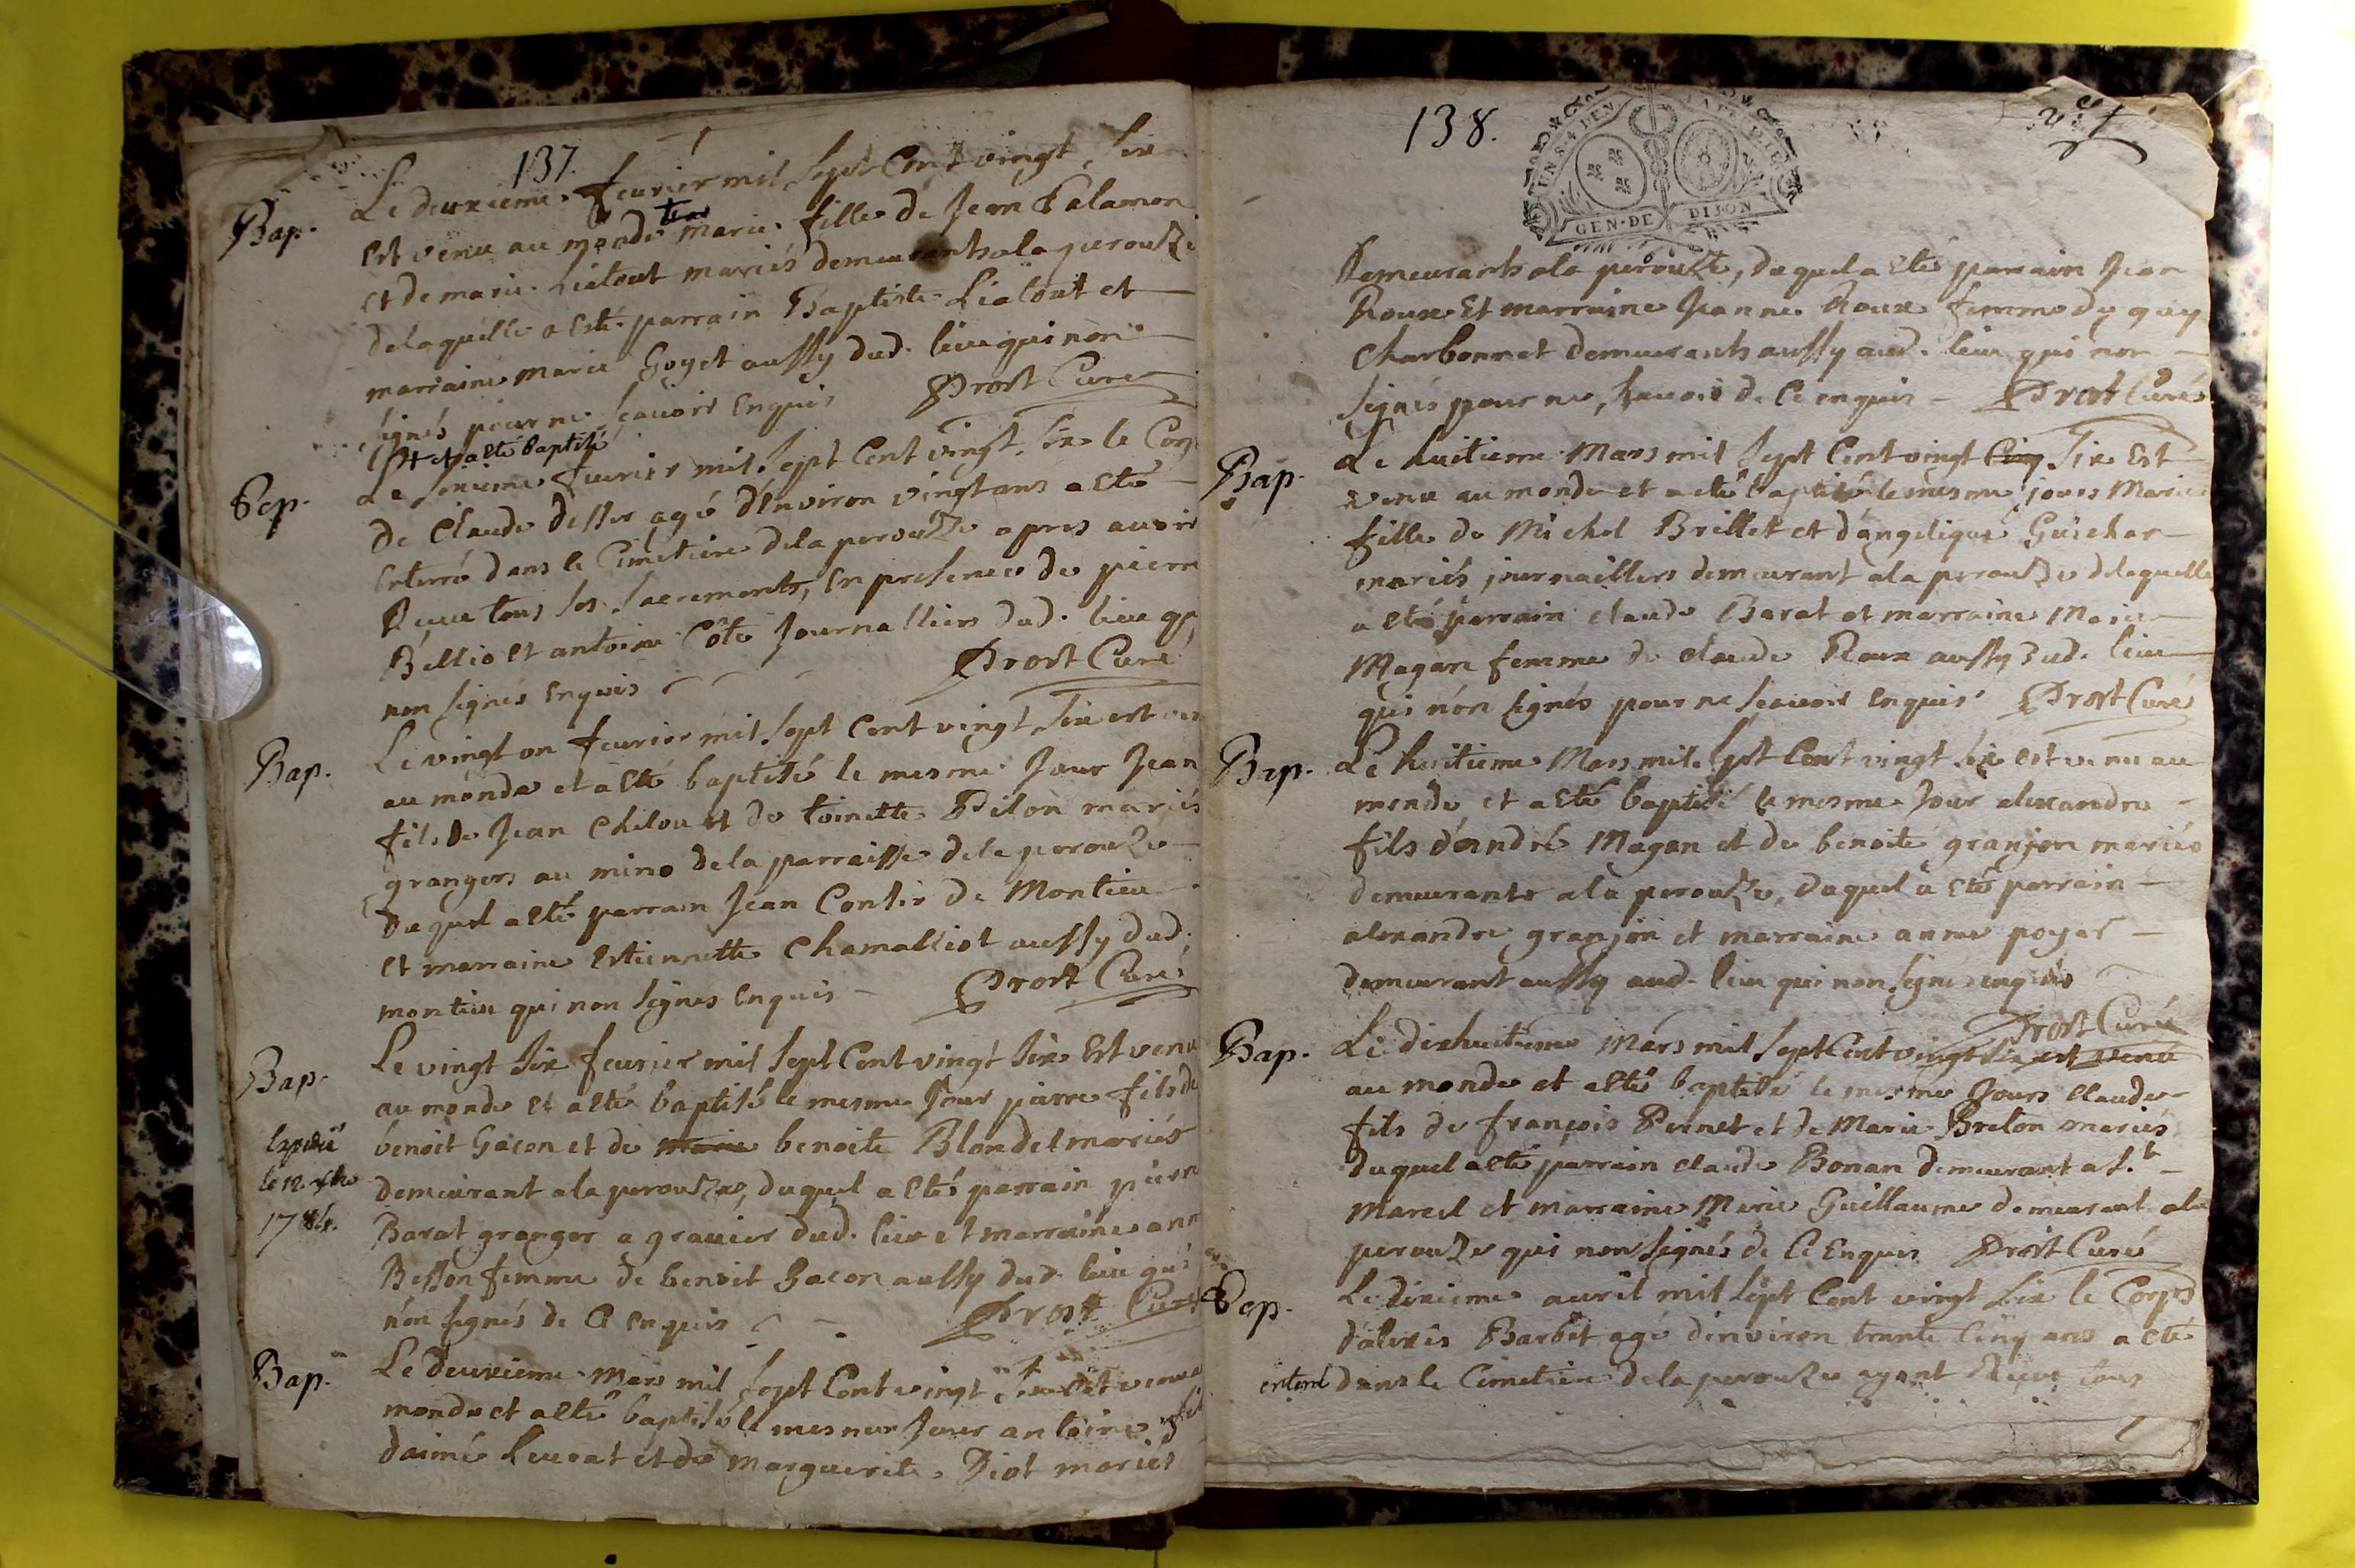 137.
Bap.
Le deuxieme feurier mil sept Cent vingt six
est venu au monde marie fille de Jean Palamon
et de marie Liatout mariés demeurants ala perouze
delaquelle a esté parrain Baptiste Liatout et
marraine marie Goyet aussy dud. lieu qui non
signés pour ne scauoir enquis Prost Curé
et a esté baptisé
Sep.
Le sixieme feurier mil sept Cent vingt six le Corp
de Claude desser agé d'Environ vingt ans a esté
enterré dans le Cimetiere dela perouze apres auoir
Reçeu tous ses sacrements, en presence de pierre
Bellio et antoine Côte Journalliers dud. lieu
non signés enquis Prost Curé
Bap.
Le vingt on feurier mil sept Cent vingt six est
au monde et a esté baptisé le mesme Jour Jean
fils de Jean Chilou et de toinette Pilon mariés
grangers au mino dela parraisse dela perouze
duquel a esté parrain Jean Contir de Montieu
et marraine estiennette Chamalliot aussy dud.
montieu qui non signes enquis Prost Curé
Bap.
Le vingt six feurier mil sept Cent vingt six Est venu
au monde et a esté baptisé le mesme Jour pierre fils de
Expedié
benoit Gacon et de marie benoite Blondet mariés
le 12
demeurant ala perouze, duquel a estés parrain pierre
Barat granger a grauier dud. lieu et marraine ann
Besson femme de benoit Gacon aussy dud. lieu qui
nón signés de Ce enquis Prost Curé
Bap.
Le deuxieme Mars mil sept Cent vingt six est venu
monde et a esté baptisé le mesme Jour antoine fil
daimé Leurat et de marguerite Diot mariés
138.
GEN. DE DIJON
Demeurants ala perouze, duquel a estés parrain Jean
Roux Et marraine Jeanne Roux femme de guy
Charbonnet demeurants aussy aud. lieu qui non
signés pour ne scauoir de Ce enquis Prost Curé
Bap.
Le huitieme Mars mil sept Cent vingt Cinq six Est
venu au monde et a esté baptisé le mesme jours Marie
fille de Michel Brillet et d'angelique Guichar
mariés journailliers demeurant ala perouze delaquelle
a esté parrain claude Barat et marraine Marie
Magan femme de claude Roux aussy dud. lieu
qui nón signés pour ne scauoir enquis Prost Curé
Bap.
Le huitieme Mars mil sept Cent vingt six est venu au
monde et a esté baptisé le mesme Jour alexandre
fils d'andré Magan et de benoite granjon mariés
demeurants ala perouze, duquel a estés parrain
alexandre granjon et marraine anne poyar
demeurant aussy aud. lieu qui non signés enquis
Prost Curé
Bap.
Le dixhuitieme Mars mil sept Cent vingt six est venu
au monde et a esté baptisé le mesme Jours claude
fils de françois Pernet et de Marie Breton mariés
duquel a esté parrain claude Bonan demeurant a S.t
Marcel et marraine Marie Guillaume demeurant ala
perouze qui non signés de Ce Enquis Prost Curé
Sep.
Le dixieme auril mil sept Cent vingt six le Corps
d'alexis Barbet agé d'inviron trente Cinq ans a esté
enterré dans le Cimetiere dela perouze ayant Reçeu tous